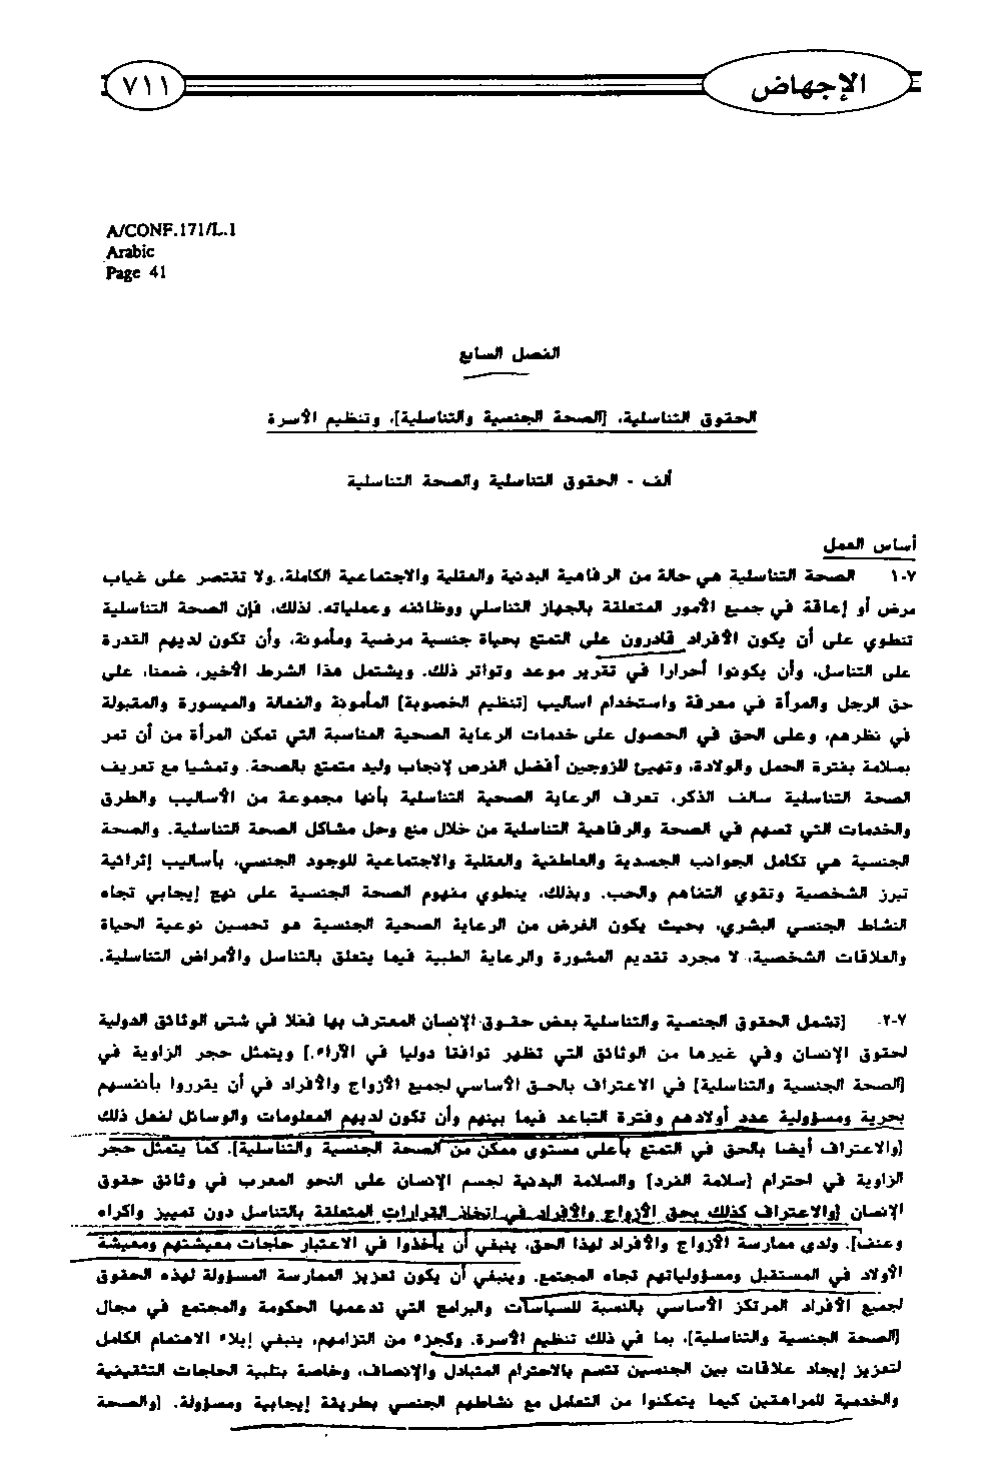 الإجهاض
٧١١
A/CONF.171/L.1
Arabic
Page 41
الفصل السابع
الحقوق التناسلية، [الصحة الجنسية والتناسلية]، وتنظيم الأسرة
ألف - الحقوق التناسلية والصحة التناسلية
أساس العمل
٧-١ الصحة التناسلية هي حالة من الرفاهية البدنية والعقلية والاجتماعية الكاملة، ولا تقتصر على غياب
مرض أو إعاقة في جميع الأمور المتعلقة بالجهاز التناسلي ووظائفه وعملياته. لذلك، فإن الصحة التناسلية
تنطوي على أن يكون الأفراد قادرون على التمتع بحياة جنسية مرضية ومأمونة، وأن تكون لديهم القدرة
على التناسل، وأن يكونوا أحرارا في تقرير موعد وتواتر ذلك. ويشتمل هذا الشرط الأخير، ضمنا، على
حق الرجل والمرأة في معرفة واستخدام اساليب [تنظيم الخصوبة] المأمونة والفعالة والميسورة والمقبولة
في نظرهم، وعلى الحق في الحصول على خدمات الرعاية الصحية المناسبة التي تمكن المرأة من أن تمر
بسلامة بفترة الحمل والولادة، وتهيئ للزوجين أفضل الفرص لإنجاب وليد متمتع بالصحة. وتمشيا مع تعريف
الصحة التناسلية سالف الذكر، تعرف الرعاية الصحية التناسلية بأنها مجموعة من الأساليب والطرق
والخدمات التي تسهم في الصحة والرفاهية التناسلية من خلال منع وحل مشاكل الصحة التناسلية. والصحة
الجنسية هي تكامل الجوانب الجسدية والعاطفية والعقلية والاجتماعية للوجود الجنسي، بأساليب إثرائية
تبرز الشخصية وتقوي التفاهم والحب. وبذلك، ينطوي مفهوم الصحة الجنسية على نهج إيجابي تجاه
النشاط الجنسي البشري، بحيث يكون الغرض من الرعاية الصحية الجنسية هو تحسين نوعية الحياة
والعلاقات الشخصية، لا مجرد تقديم المشورة والرعاية الطبية فيما يتعلق بالتناسل والأمراض التناسلية.
٧-٢ [تشمل الحقوق الجنسية والتناسلية بعض حقوق الإنسان المعترف بها فعلا في شتى الوثائق الدولية
لحقوق الإنسان وفي غيرها من الوثائق التي تظهر توافقا دوليا في الآراء.] ويتمثل حجر الزاوية في
[الصحة الجنسية والتناسلية] في الاعتراف بالحق الأساسي لجميع الأزواج والأفراد في أن يقرروا بأنفسهم
بحرية ومسؤولية عدد أولادهم وفترة التباعد فيما بينهم وأن تكون لديهم المعلومات والوسائل لفعل ذلك
[والاعتراف أيضا بالحق في التمتع بأعلى مستوى ممكن من الصحة الجنسية والتناسلية]. كما يتمثل حجر
الزاوية في احترام [سلامة الفرد] والسلامة البدنية لجسم الإنسان على النحو المعرب في وثائق حقوق
الإنسان [والاعتراف كذلك بحق الأزواج والأفراد في اتخاذ القرارات المتعلقة بالتناسل دون تمييز واكراه
وعنف]. ولدى ممارسة الأزواج والأفراد لهذا الحق، ينبغي أن يأخذوا في الاعتبار حاجات معيشتهم ومعيشة
الأولاد في المستقبل ومسؤولياتهم تجاه المجتمع. وينبغي أن يكون تعزيز الممارسة المسؤولة لهذه الحقوق
لجميع الأفراد المرتكز الأساسي بالنسبة للسياسات والبرامج التي تدعمها الحكومة والمجتمع في مجال
[الصحة الجنسية والتناسلية]، بما في ذلك تنظيم الأسرة. وكجزء من التزامهم، ينبغي إيلاء الاهتمام الكامل
لتعزيز إيجاد علاقات بين الجنسين تتسم بالاحترام المتبادل والإنصاف، وخاصة بتلبية الحاجات التثقيفية
والخدمية للمراهقين كيما يتمكنوا من التعامل مع نشاطهم الجنسي بطريقة إيجابية ومسؤولة. [والصحة